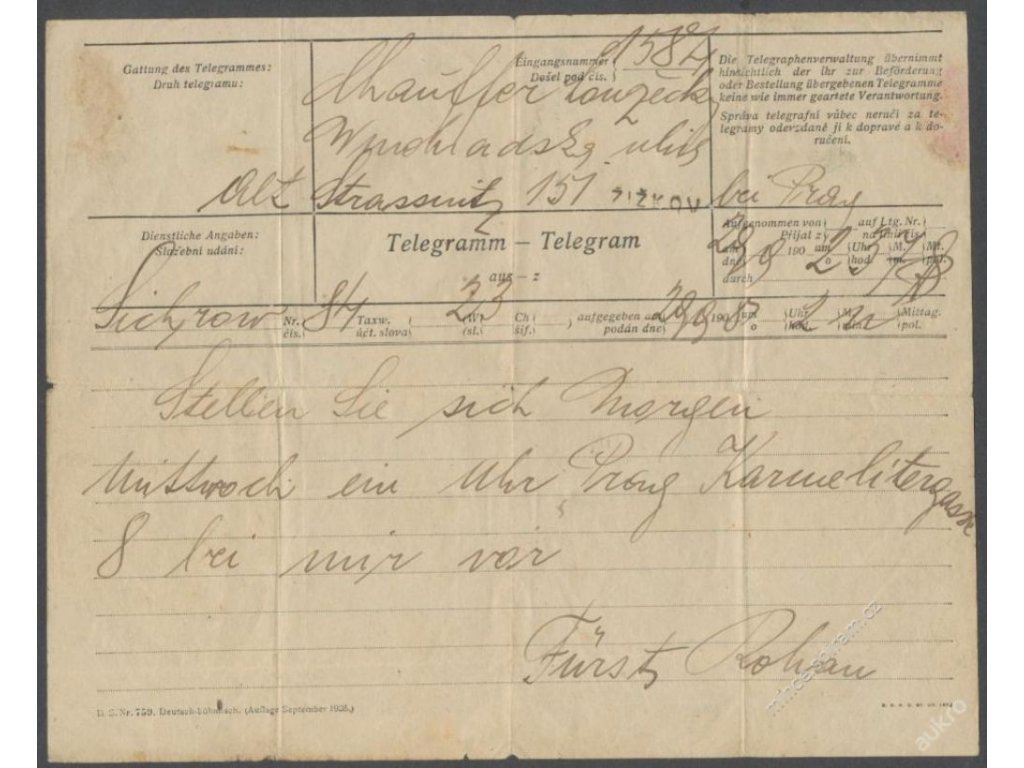 Gattung des Telegrammes:
Druh telegramu:
Eingangsnummer
Došel pod čís.
1584
Die Telegraphenverwaltung übernimmt
hinsichtlich der ihr zur Beförderung
oder Bestellung übergebenen Telegramme
keine wie immer geartete Verantwortung.
Správa telegrafní vůbec neručí za te-
legramy odevzdané jí k dopravě a k do-
ručení.
Chauffer
ulice
Alt Strassnitz 151 ŽIŽKOV bei Prag
Dienstliche Angaben:
Služební udání:
Telegramm – Telegram
aus – z
Aufgenommen von auf Ltg. Nr.
Přijal z na lin. čís.
am 29/9 190 um Uhr M. Mt.
dne o hod. m. pol.
durch
Sichrow Nr. 84 Taxw. 23 (W. Ch aufgegeben am 29/9 190 8 um 2 Uhr M. Mittag.
čís. účt. slova (sl. šif. podán dne o hod. min. pol.
Stellen Sie sich Morgen
Mittwoch ein Uhr Prag Karmelitergasse
8 bei mir vor
Fürst Rohan
D. S. Nr. 750. Deutsch-böhmisch. (Auflage September 1908.)
mhcaspuram.cz
aukro